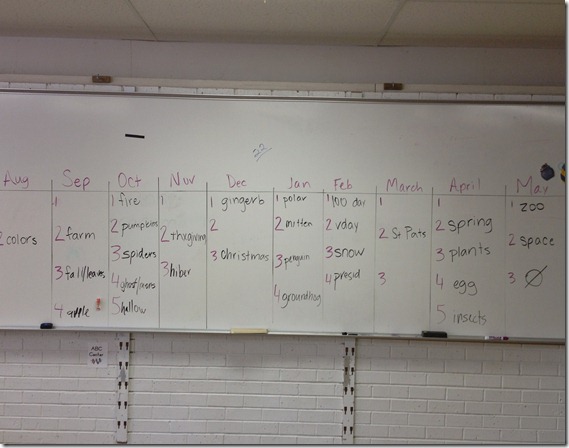 22
Aug Sep Oct Nov Dec Jan Feb March April May
2 colors
1
2 farm
3 fall/leaves
4 apple !
1 fire
2 pumpkins
3 spiders
4
5 hallow
1
2 thxgiving
3 hiber
1 gingerb
2
3 christmas
1 polar
2 mitten
3 penguin
4 groundhog
1 100 day
2 vday
3 snow
4 presid
1
2 St Pats
3
1
2 spring
3 plants
4 egg
5 insects
1 zoo
2 space
3 Ø
ABC
Center